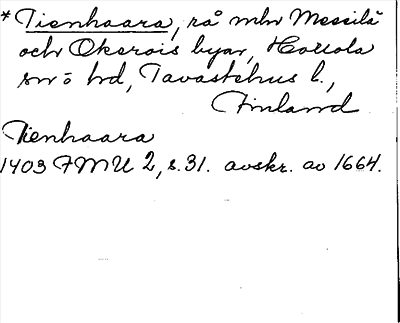 * Tienhaara, rå mhr Messilä
och Okerois byar, Hollola
sn o hd, Tavastehus l.,
Finland
Tienhaara
1403 FMU 2, s. 31. avskr. av 1664.